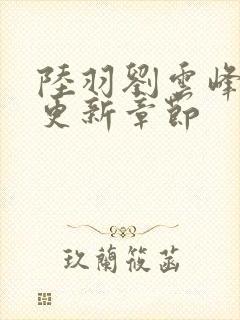 陸羽劉雲峰
更新章節
玖蘭筱菡